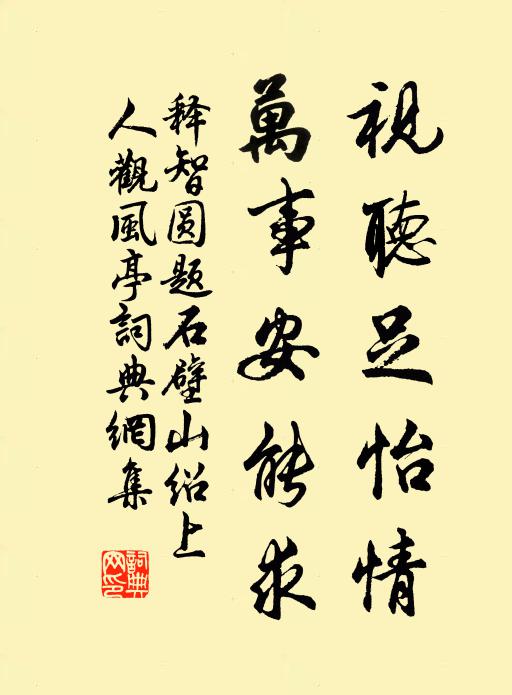 視聽足怡情
萬事安能求
释智圆题石壁山绍上
人觀風亭詞典網集
詞典網印